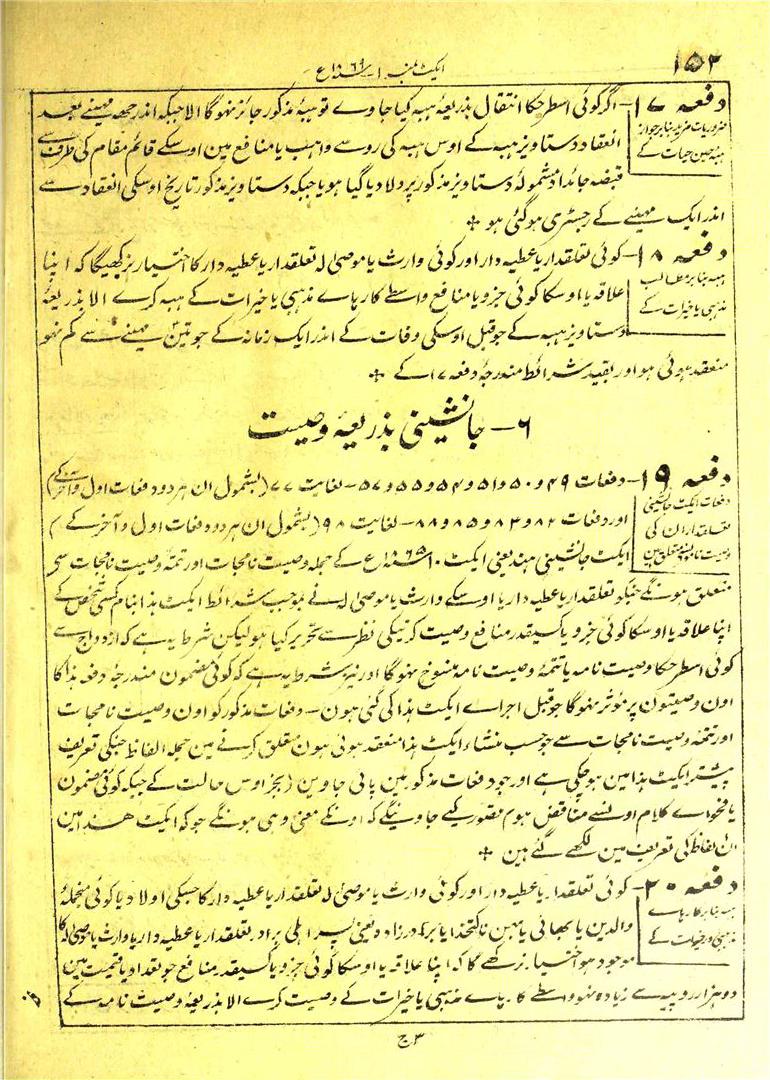 ۱۵۳
ایکٹ نمبر ۱ سنہ ۱۸۶۹ع
دفعہ ۱۷- اگر کوئی اسطرحکا انتقال بذریعۂ ہبہ کیا جاوے تو ہبۂ مذکور جائز نہوگا الا جبکہ اندر چھہ مہینے بعد
ضروریات مزید بنا بر جواز
ہبہ حین حیات کے
انعقاد دستاویز ہبہ کے اوس ہبہ کی رو سے واہب یا منافع مین اوسکے قائم مقام کی طرف سے
قبضہ جائداد مشمولۂ دستاویز مذکور پر دلا دیا گیا ہو یا جبکہ دستاویز مذکور تاریخ اوسکی انعقاد سے
اندر ایک مہینے کے رجسٹری ہو گئی ہو ✢
دفعہ ۱۸- کوئی تعلقدار یا عطیہ دار اور کوئی وارث یا موصیٰ لہ تعلقدار یا عطیہ دار کا اختیار نرکھیگا کہ اپنا
ہبہ بنا بر مطالب
مذہبی یا خیرات کے
علاقہ یا اوسکا کوئی جزو یا منافع واسطے کارہاے مذہبی یا خیرات کے ہبہ کرے الا بذریعۂ
دستاویز ہبہ کے جو قبل اوسکی وفات کے اندر ایک زمانہ کے جو تین مہینے سے کم نہو
منعقد ہوئی ہو اور بقید شرائط مندرجۂ دفعہ ۱۷ کے ✢
۶- جانشینی بذریعۂ وصیت
دفعہ ۱۹- دفعات ۴۹ و ۵۰ و ۵۱ و ۵۴ و ۵۵ و ۵۷- لغایت ۷۷ (بشمول ان ہر دو دفعات اول و آخر کے)
دفعات ایکٹ جانشینی
تعلقداران کی
وصیت ناموں سے متعلق ہین
اور دفعات ۸۲ و ۸۳ و ۸۵ و ۸۸- لغایت ۹۸ (بشمول ان ہر دو دفعات اول و آخر کے)
ایکٹ جانشینی ہند یعنی ایکٹ ۱۰ سنہ ۱۸۶۵ع کے جملہ وصیت نامجات اور تتمۂ وصیت نامجات سے
متعلق ہونگے جنکو تعلقدار یا عطیہ دار یا اوسکے وارث یا موصیٰ لہ نے بموجب شرائط ایکٹ ہذا بنام کسی شخص کے
اپنا علاقہ یا اوسکا کوئی جزو یا کسیقدر منافع وصیت کرنیکی نظر سے تحریر کیا ہو لیکن شرط یہ ہے کہ ازدواج سے
کوئی اسطرحکا وصیت نامہ یا تتمۂ وصیت نامہ منسوخ نہوگا اور نیز شرط یہ ہے کہ کوئی مضمون مندرجۂ دفعہ ہذا کا
اون وصیتون پر موثر نہوگا جو قبل اجراے ایکٹ ہذا کی گئی ہون- دفعات مذکور کو اون وصیت نامجات
اور تتمۂ وصیت نامجات سے جو حسب منشاء ایکٹ ہذا منعقد ہوئی ہون متعلق کرنے مین جملہ الفاظ جنکی تعریف
پیشتر ایکٹ ہذا مین ہوچکی ہے اور جو دفعات مذکور مین پائی جاوین (بجز اوس حالت کے جبکہ کوئی مضمون
یا فحواے کلام اوسسے متناقض ہو) تصور کیے جاوینگے کہ اونکے معنی وہی ہونگے جو کہ ایکٹ ہذا مین
ان الفاظ کی تعریف مین لکھے گئے ہین ✢
دفعہ ۲۰- کوئی تعلقدار یا عطیہ دار اور کوئی وارث یا موصیٰ لہ تعلقدار یا عطیہ دار کا جسکی اولاد یا کوئی منجملہ
ہبہ بنا بر کارہاے
مذہبی و خیرات کے
والدین یا بھائی یا بہن ناکتخدا یا برادرزادہ یعنی پسر اصلی برادر تعلقدار یا عطیہ دار یا وارث یا موصیٰ لہ کا
موجود ہو اختیار نرکھے گا کہ اپنا علاقہ یا اوسکا کوئی جزو یا کسیقدر منافع جو تعداد یا قیمت مین
دو ہزار روپیہ سے زیادہ نہو واسطے کارہاے مذہبی یا خیرات کے وصیت کرے الا بذریعۂ وصیت نامہ کے
ج ۳